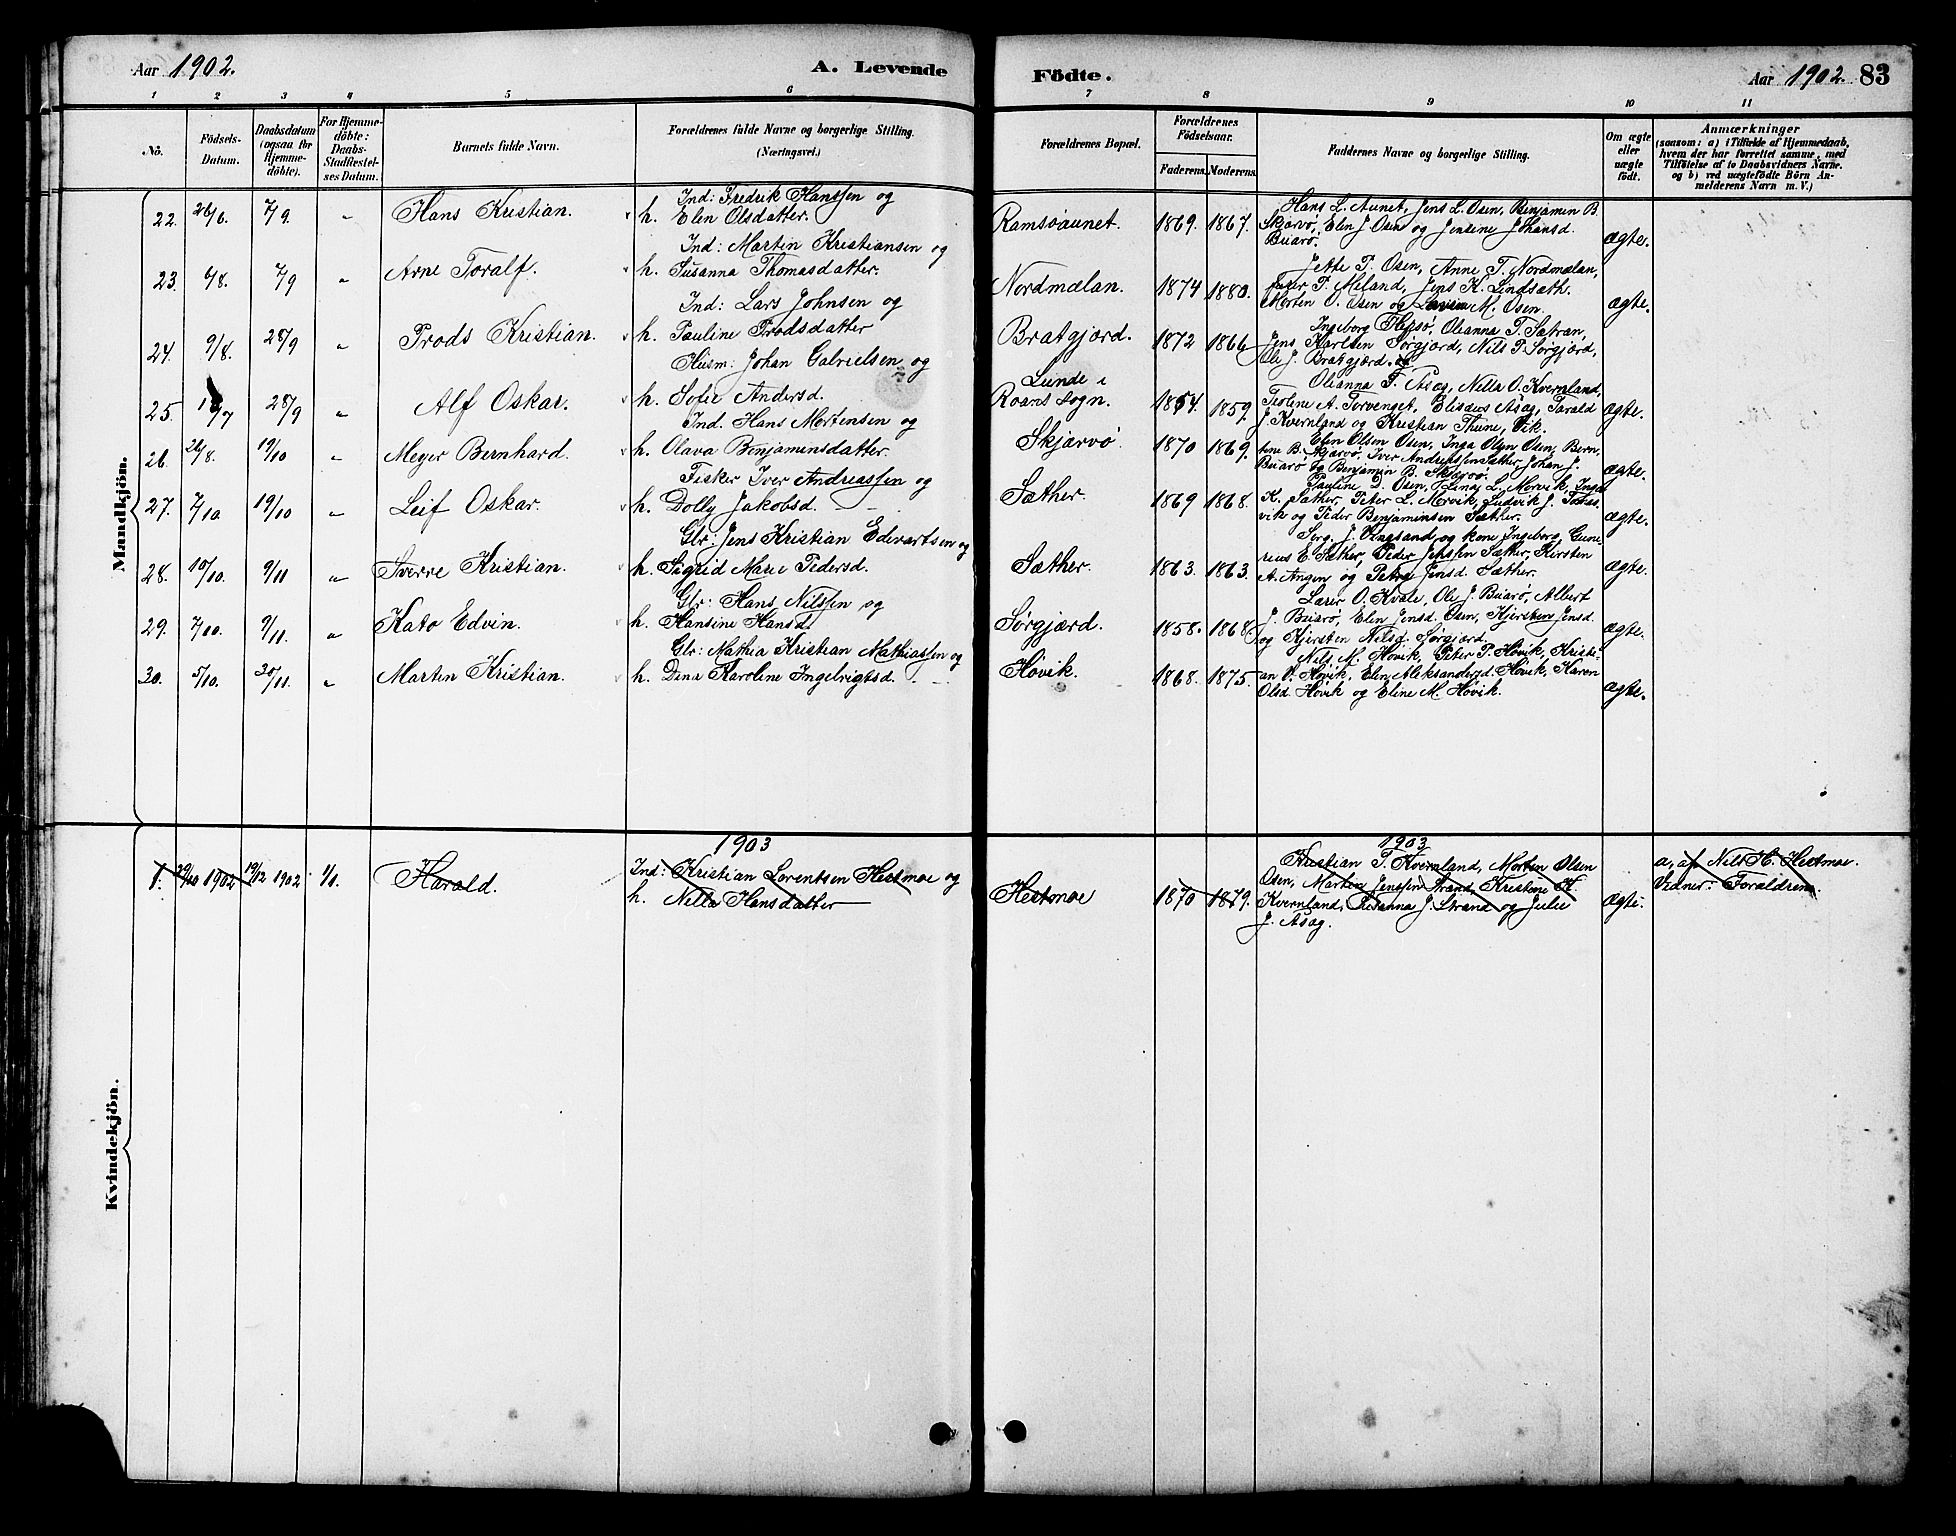 Aar 1902. A. Levende Födte. Aar 1902. 83
1 2 3 4 5 6 7 8 9 10 11
No.
Födsels-
Datum.
Daabsdatum
(ogsaa for
Hjemme-
döbte).
For Hjemme-
döbte:
Daabs-
Stadfæstel-
ses Datum.
Barnets fulde Navn.
Forældrenes fulde Navne og borgerlige Stilling.
(Næringsvei.)
Forældrenes Bopæl.
Forældrenes
Födselsaar.
Faderens. Moderens.
Faddernes Navne og borgerlige Stilling.
Om ægte
eller
uægte
födt.
Anmærkninger
(saasom: a) i Tilfælde af Hjemmedaab,
hvem der har forrettet samme, med
Tilföielse af to Daabsvidners Navne.
og b) ved uægtefödte Börn An-
melderens Navn m. V.)
Mandkjön.
22. 26/6. 7/9. " Hans Kristian.
Ind: Fredrik Hanssen og
h. Elen Olsdatter.
Ramsöaunet. 1869. 1867.
Hans L. Aunet, Jens L. Osen, Benjamin B.
Skjærvö, Elen J. Osen og Jensine Johansd.
Buarö. ægte.
23. 6/8. 7/9 " Arne Toralf.
Ind: Martin Kristiansen og
h. Susanna Thomasdatter.
Nordmælan. 1874 1880.
Jette P. Osen, Anne T. Nordmælan,
P. Meland, Jens K. Lindsæth.
Morten O. Osen og M. Osen. ægte.
24. 9/8. 28/9 " Prods Kristian.
Ind: Lars Johnsen og
h. Pauline Prodsdatter
Bratgjord. 1872 1866
Ingeborg Olianna P. Sætran,
Jens Karlsen Sörgjord, Nils P. Sörgjord,
Ole J. Bratgjærd.
25. 28/9 " Alf Oskar.
Husm: Johan Gabrielsen og
h. Sofie Andersd.
Lunde i
Roans Sogn. 1854. 1859.
Olianna F. Aság, Nella O. Kvernland,
A. Torvenget, Elisæus Aság, Tarald
J. Kvernland og Kristian Thine, Vik. ægte.
26. 26/8. 19/10 " Meyer Bernhard.
Ind. Hans Mortensen og
h. Olava Benjaminsdatter.
Skjærvö. 1870 1869.
Elen Olsen Osen, Inga Olsen Osen, Bern-
tine B. Skjærvö, Iver Andreassen Sæther, Johan J.
Buarö og Benjamin B. Skjærvö. ægte.
27. 7/10. 19/10 " Leif Oskar.
Fisker Iver Andreassen og
h. Dolly Jakobsd.
Sæther. 1869 1868.
Pauline D. Osen, L. Morvik, Inga
K. Sæther, Peter L. Morvik, Ludvik J.
vik og Peder Benjaminsen Sæther. ægte.
28. 10/10. 9/11 " Sverre Kristian.
Gbr: Jens Kristian Edvartsen og
h. Sigrid Marie Pedersd.
Sæther. 1863. 1863.
Serg. J. Vingsand og kone Ingeborg,
E. Sæther, Peder Jenssen Sæther, Kirsten
A. Angen og Petra Jensd. Sæther. ægte.
29. 7/10. 9/11. " Kato Edvin.
Gbr: Hans Nilssen og
h. Hansine Hansd.
Sörgjærd. 1858. 1868.
Lærer O. Kvale, Ole J. Buarö, Albert
J. Buarö, Elen Jensd. Osen, Kjersten Jensd.
og Kjersten Nilsd. Sörgjærd. ægte.
30. 5/10. 30/11. " Martin Kristian.
Gbr: Mathia Kristian Mathiassen og
h. Dina Karoline Ingebrigtsd.
Hövik. 1868. 1875.
Nils M. Hövik, Peter P. Hövik, Kristi-
an O. Hövik, Elen Aleksandersd. Hövik, Karen
Olsd. Hövik og Eline M. Hövik. ægte.
Kvindekjön.
1903 1903
1. 29/10 1902 19/12 1902 1/1. Harald.
Ind: Kristian Lorentsen Hestmoe og
h. Nella Hansdatter
Hestmoe 1870 1879.
Kristian T. Kvernland, Morten Olsen
Osen, Martin Jenssen Strand, Kristine K.
Kvernland, Susanna J. Strand og Julie
J. Aság. ægte.
a, af Nils H. Hestmoe.
Vidner: Forældrene.